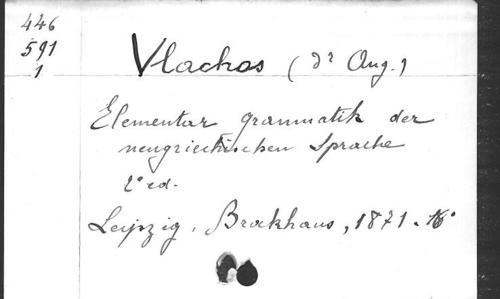 446
591
1
Vlachos (Dr Ang.)
Elementar grammatik der
neugriechischen Sprache
2e ed.
Leipzig, Brockhaus, 1871. 16°